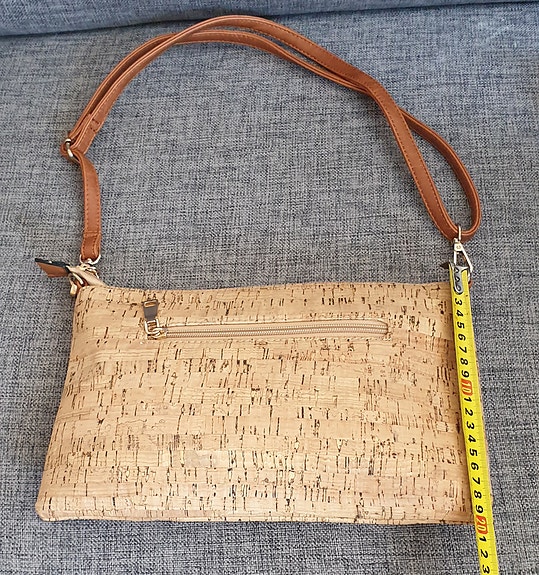 3 4 5 6 7 8 9 10 1 2 3 4 5 6 7 8 9 20 1 2 3